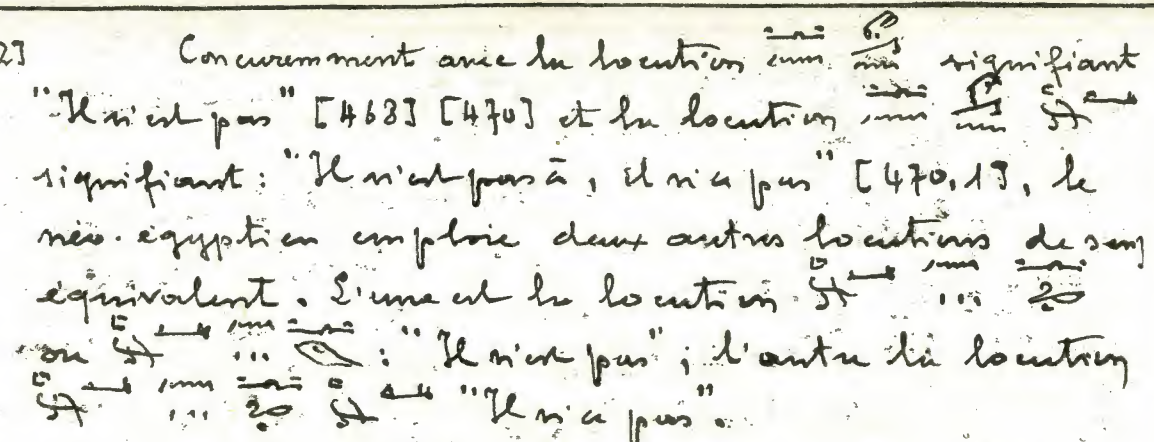 Concurremment avec la locution signifiant
"Il n'est pas" [468] [470] et la locution
signifiant: "Il n'est pas à, il n'a pas" [470,1], le
néo-égyptien emploie deux autres locutions de sens
équivalent. L'une est la locution
ou : "Il n'est pas"; l'autre la locution
"Il n'a pas".